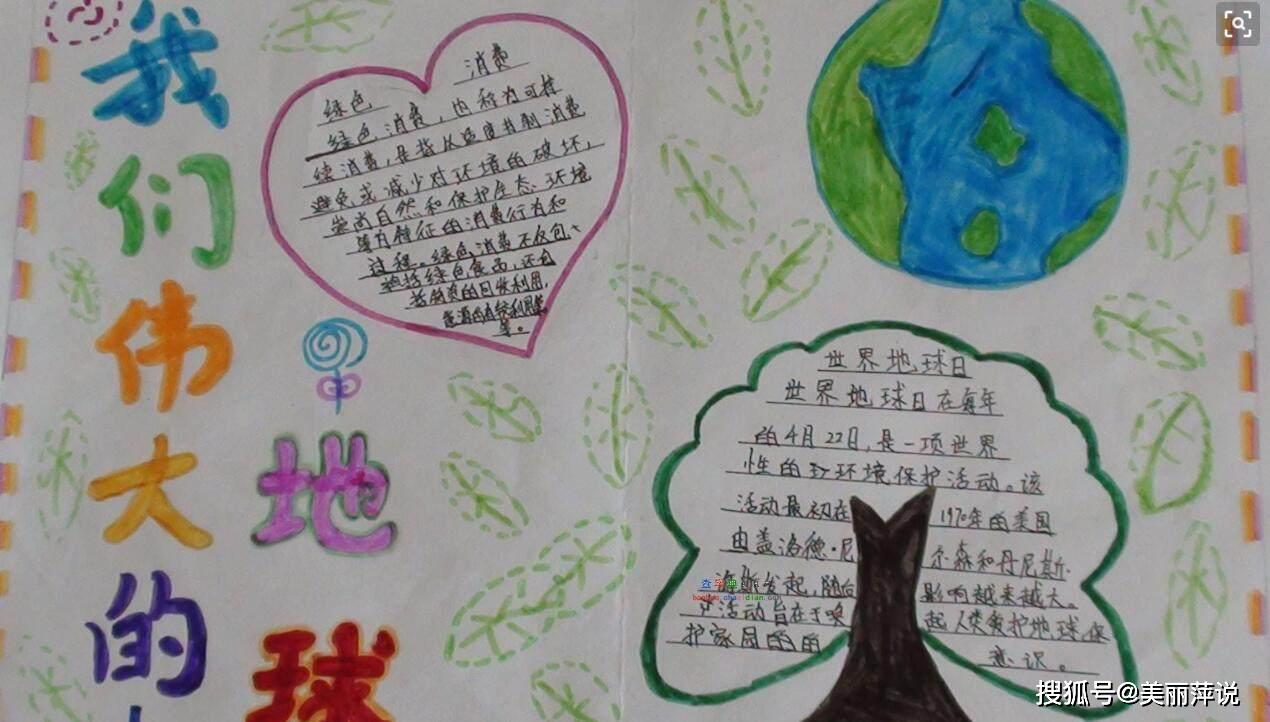 我
们
伟
大
的
地
球
绿色 消费
绿色消费,也称为可持
续消费,是指从适度节制消费
避免或减少对环境的破坏,
崇尚自然和保护生态环境
等为特征的消费行为和
过程。绿色消费不仅包、
括绿色食品,还包
的回收利用,
能源的有效利用等
等。
世界地球日
世界地球日在每年
的4月22日,是一项世界
性的环境保护活动。该
活动最初在 1970年的美国
由盖洛德·尼 尔森和丹尼斯·
海斯发起,随后 影响越来越大。
活动旨在于唤 起人类爱护地球,保
护家园的的 意识。
查字典
chazidian.com
搜狐号@美丽萍说